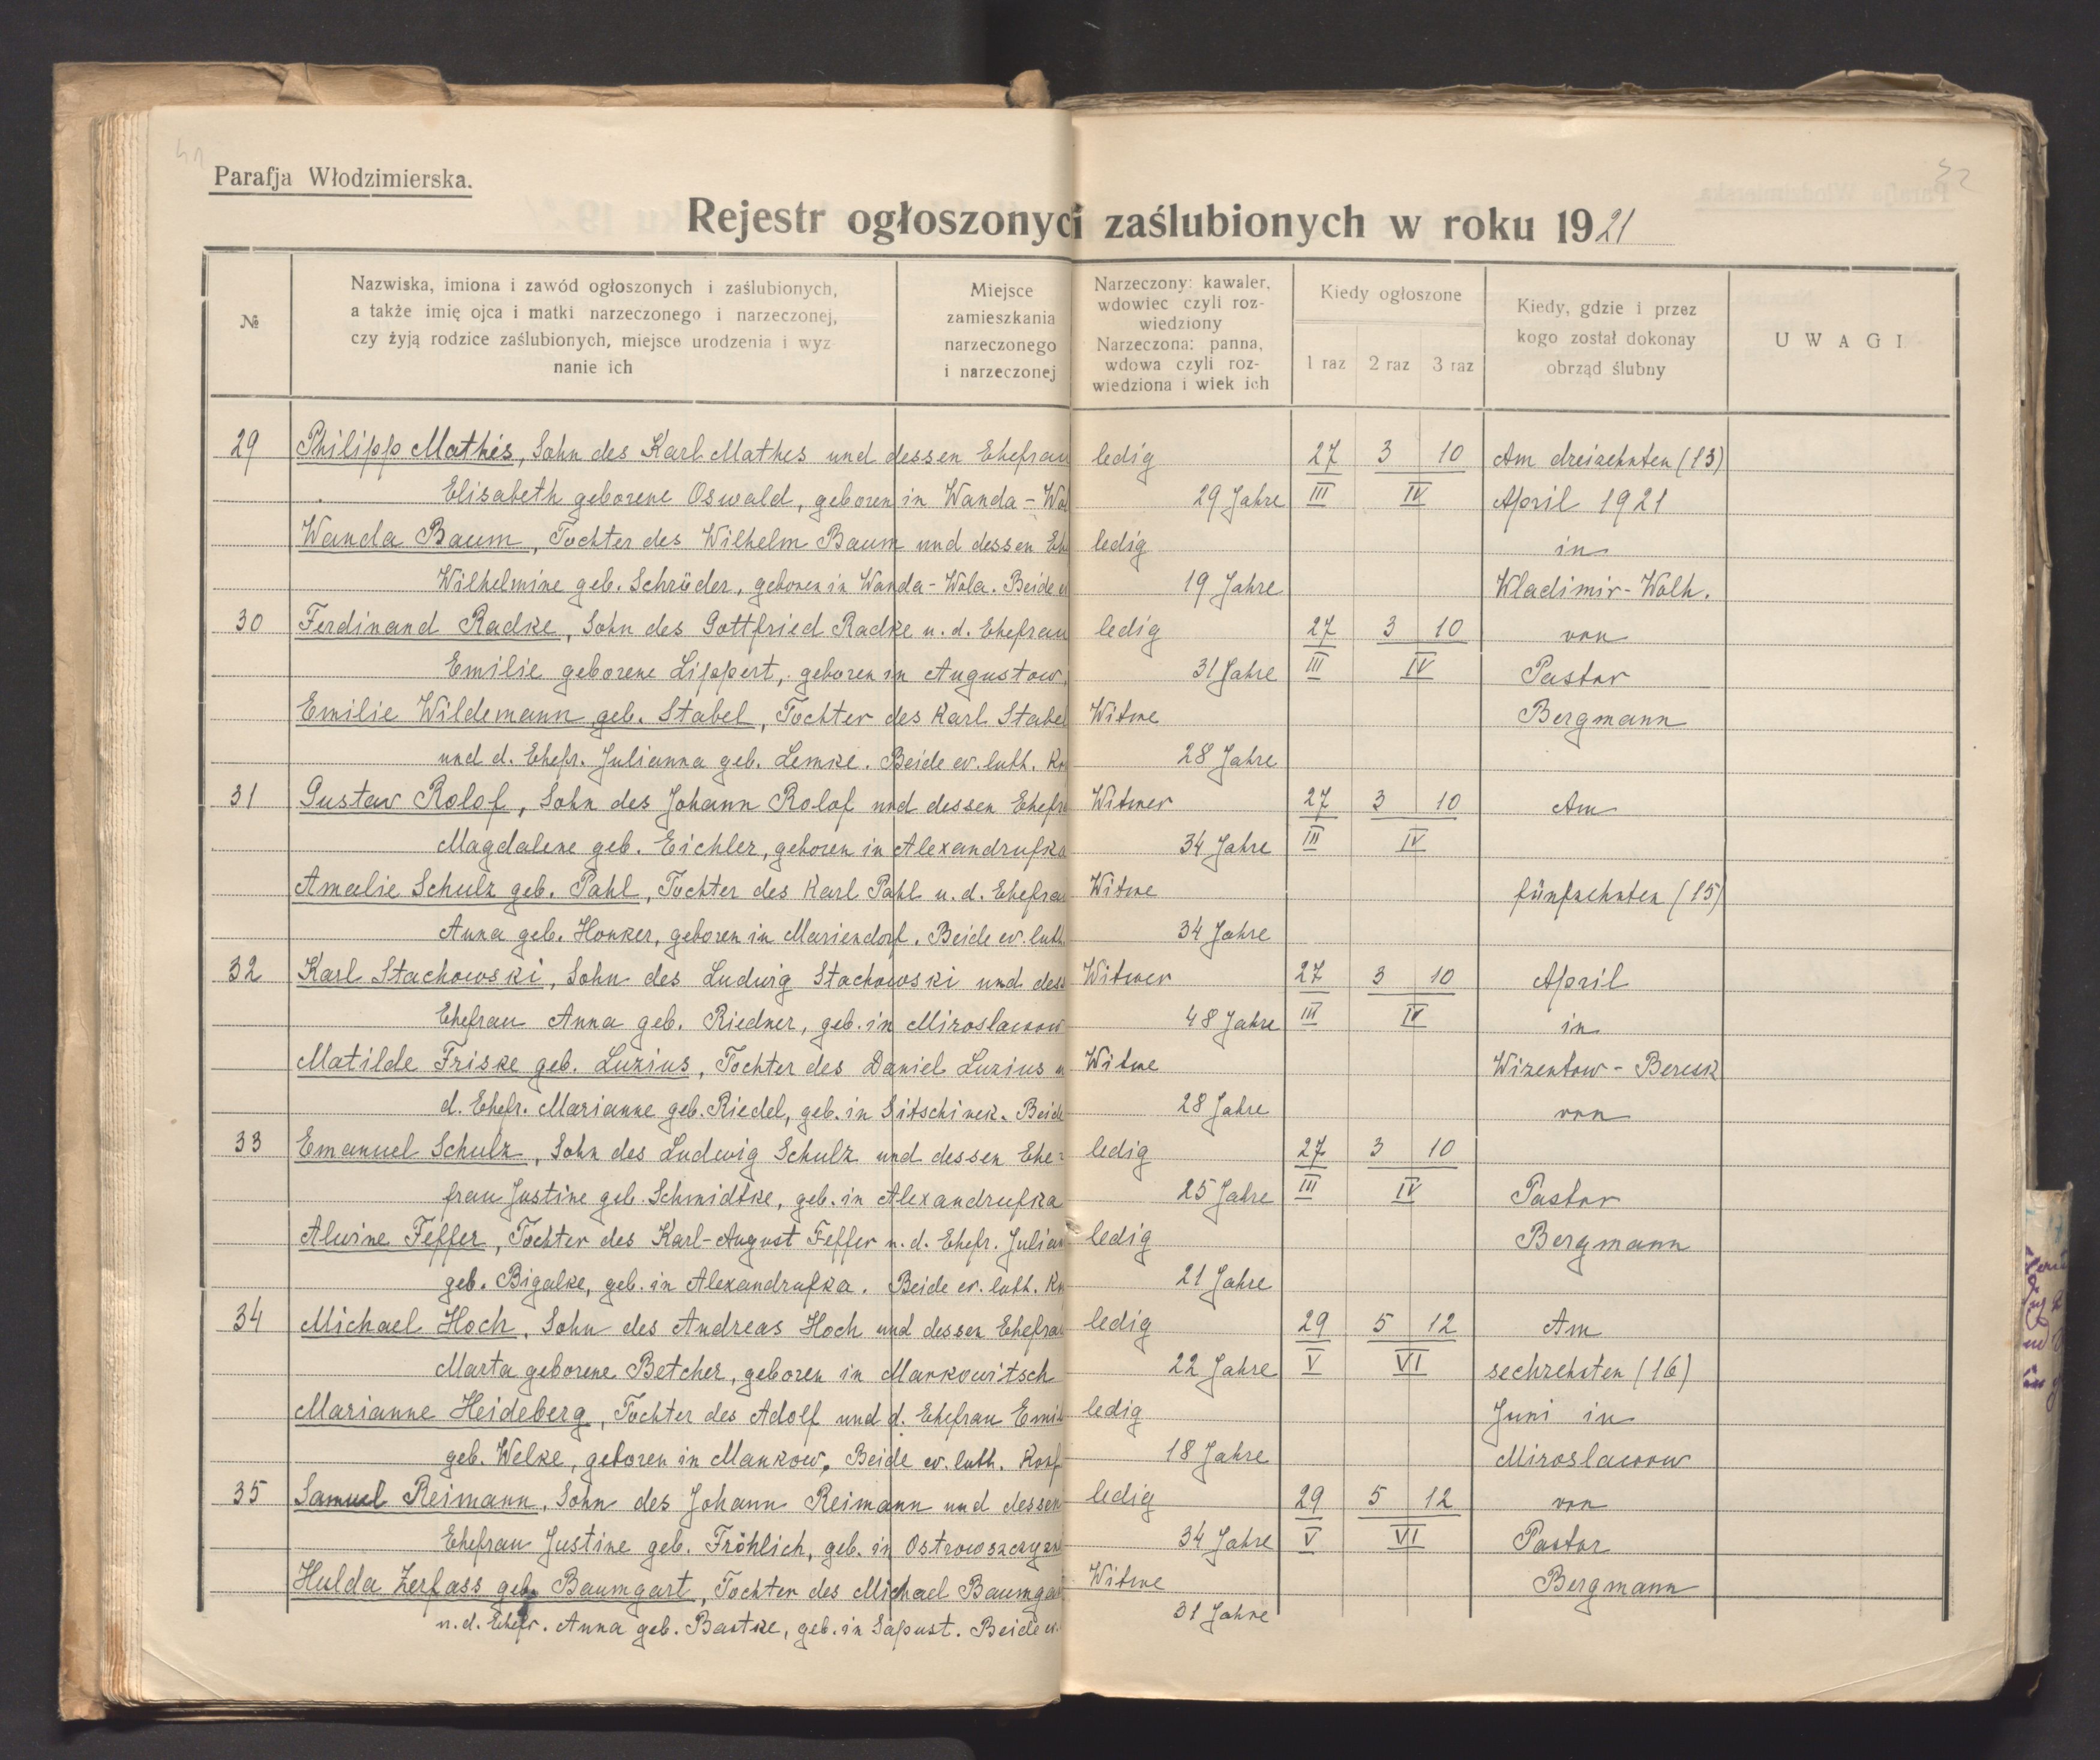 41
32
Parafja Włodzimierska.
Rejestr ogłoszonyc i zaślubionych w roku 1921
№
Nazwiska, imiona i zawód ogłoszonych i zaślubionych,
a także imię ojca i matki narzeczonego i narzeczonej,
czy żyją rodzice zaślubionych, miejsce urodzenia i wyz
nanie ich
Miejsce
zamieszkania
narzeczonego
i narzeczonej
Narzeczony: kawaler,
wdowiec czyli roz-
wiedziony
Narzeczona: panna,
wdowa czyli roz-
wiedziona i wiek ich
Kiedy ogłoszone
1 raz 2 raz 3 raz
Kiedy, gdzie i przez
kogo został dokonay
obrząd ślubny
UWAGI
29 Philipp Mathes, Sohn des Karl Mathes und dessen Ehefrau ledig 27 3 10 Am dreizehnten (13)
Elisabeth geborene Oswald, geboren in Wanda-Wol 29 Jahre III IV April 1921
Wanda Baum, Tochter des Wilhelm Baum und dessen Eh ledig in
Wilhelmine geb. Schröder, geboren in Wanda-Wola. Beide 19 Jahre Wladimir-Wolh.
30 Ferdinand Radke, Sohn des Gottfried Radke u. d. Ehefrau ledig 27 3 10 von
Emilie geborene Lippert, geboren in Augustow. 31 Jahre III IV Pastor
Emilie Wildemann geb. Stabel, Tochter des Karl Stabel Witwe Bergmann
und d. Ehefr. Julianna geb. Lemke. Beide ev. luth. Ko 28 Jahre
31 Gustav Rolof, Sohn des Johann Rolof und dessen Ehefr Witwer 27 3 10 Am
Magdalene geb. Eichler, geboren in Alexandrufka 34 Jahre III IV
Amalie Schulz geb. Pahl, Tochter des Karl Pahl u. d. Ehefrau Witwe fünfzehnten (15)
Anna geb. Honker, geboren in Mariendorf. Beide ev. luth. 34 Jahre
32 Karl Stachowski, Sohn des Ludwig Stachowski und dess Witwer 27 3 10 April
Ehefrau Anna geb. Riedner, geb. in Miroslawow 48 Jahre III IV in
Matilde Friske geb. Luzius, Tochter des Daniel Luzius u Witwe Wizentow-Beresk
d. Ehefr. Marianne geb. Riedel, geb. in Sitschinek. Beide 28 Jahre von
33 Emanuel Schulz, Sohn des Ludwig Schulz und dessen Ehe= ledig 27 3 10
frau Justine geb. Schmidtke, geb. in Alexandrufka 25 Jahre III IV Pastor
Alwine Feffer, Tochter des Karl-August Feffer u. d. Ehefr. Julian ledig Bergmann
geb. Bigalke, geb. in Alexandrufka. Beide ev. luth. Ko 21 Jahre
34 Michael Hoch, Sohn des Andreas Hoch und dessen Ehefrau ledig 29 5 12 Am
Marta geborene Betcher, geboren in Markowitsch 22 Jahre V VI sechzehnten (16)
Marianne Heideberg, Tochter des Adolf und d. Ehefrau Emil ledig Juni in
geb. Welke, geboren in Mankow. Beide ev. luth. Konf 18 Jahre Miroslawow
35 Samuel Reimann, Sohn des Johann Reimann und dessen ledig 29 5 12 von
Ehefrau Justine geb. Fröhlich, geb. in Ostrowszczyzn 34 Jahre V VI Pastor
Hulda Zerfass geb. Baumgart, Tochter des Michael Baumgar Witwe Bergmann
u. d. Ehefr. Anna geb. Bastke, geb. in Sapust. Beide ev. 31 Jahre